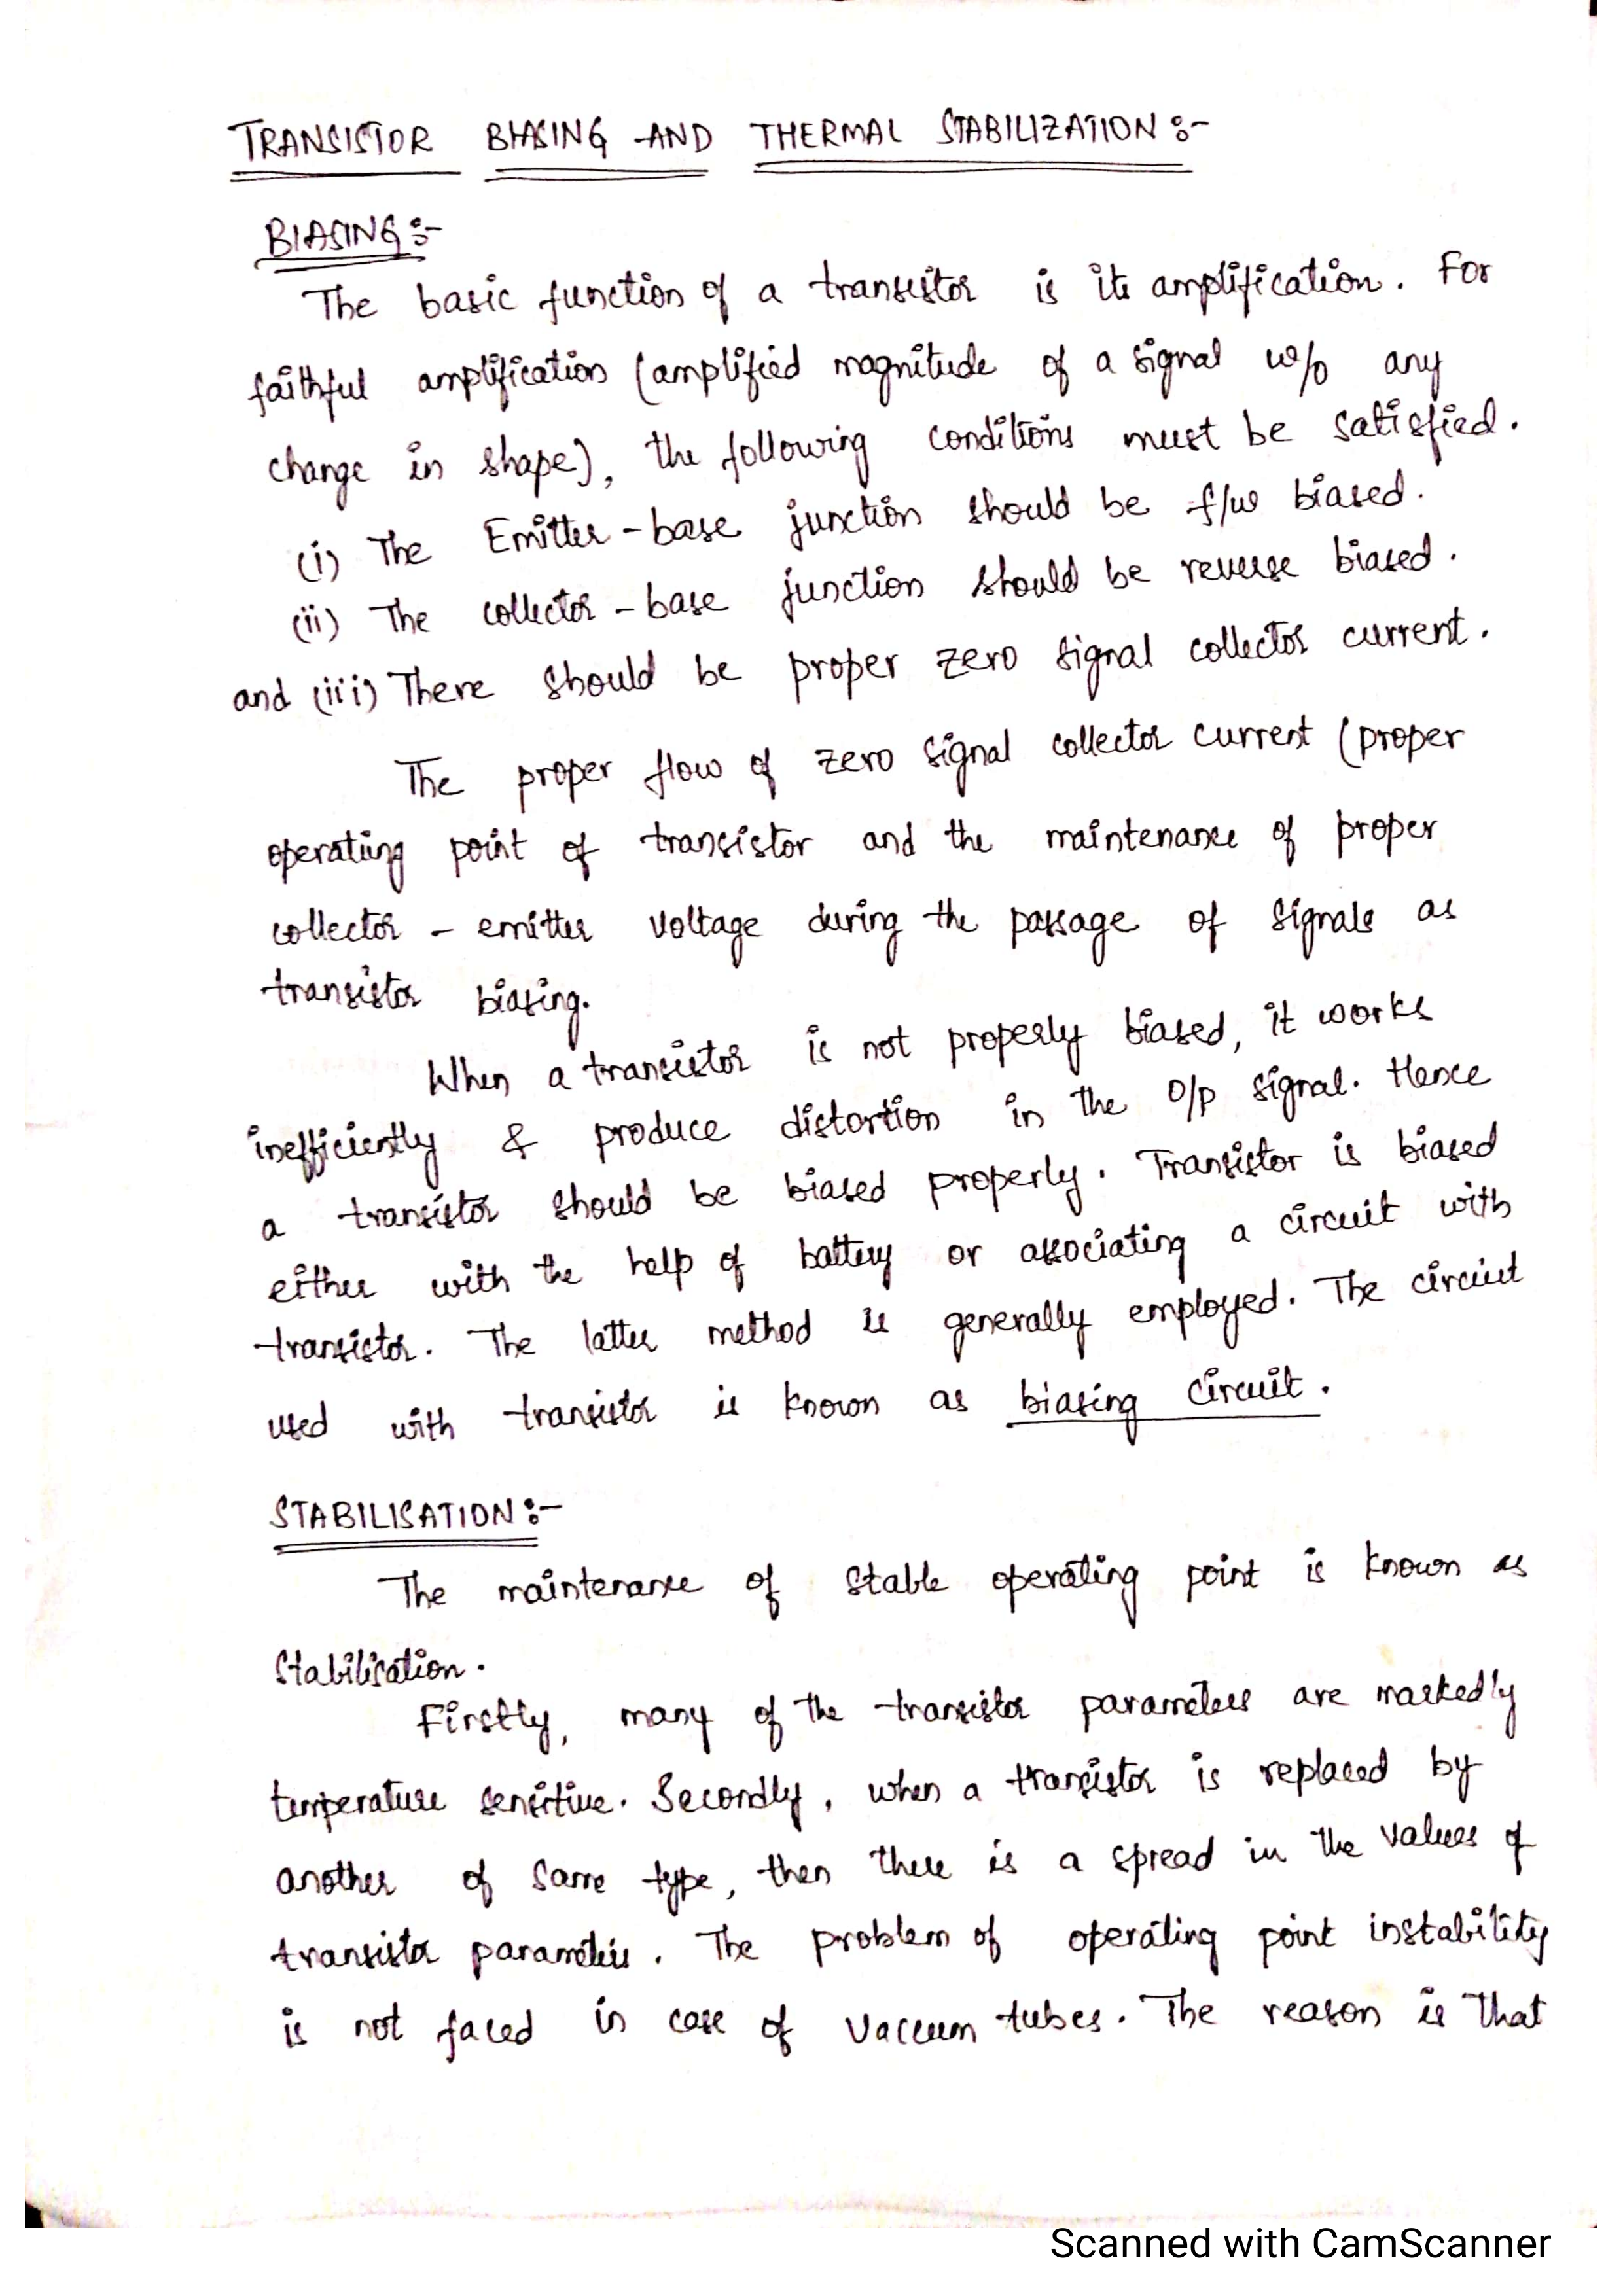 TRANSISTOR BIASING AND THERMAL STABILIZATION :-
BIASING :-
The basic function of a transistor is its amplification. For
faithful amplification (amplified magnitude of a signal w/o any
change in shape), the following conditions must be satisfied.
(i) The Emitter - base junction should be f/w biased.
(ii) The collector - base junction should be reverse biased.
and (iii) There should be proper zero signal collector current.
The proper flow of zero signal collector current (proper
operating point of transistor and the maintenance of proper
collector - emitter voltage during the passage of signals as
transistor biasing.
When a transistor is not properly biased, it works
inefficiently & produce distortion in the o/p signal. Hence
a transistor should be biased properly. Transistor is biased
either with the help of battery or associating a circuit with
transistor. The latter method is generally employed. The circuit
used with transistor is known as biasing circuit.
STABILISATION :-
The maintenance of stable operating point is known as
Stabilisation.
Firstly, many of the transistor parameters are markedly
temperature sensitive. Secondly, when a transistor is replaced by
another of same type, then there is a spread in the values of
transistor parameters. The problem of operating point instability
is not faced in case of vaccum tubes. The reason is that
Scanned with CamScanner